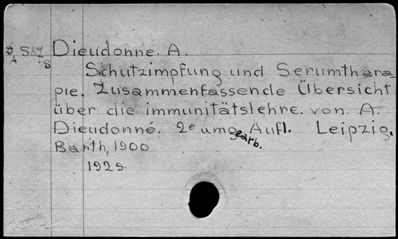 Dieudonne. A.
Schutzimpfung und Serumthera
pie. Zusammenfassende Übersicht
über die immunitätslehre. von. A.
Dieudonné. 2e umgearb. Aufl. Leipzig.
Barth, 1900
192s.